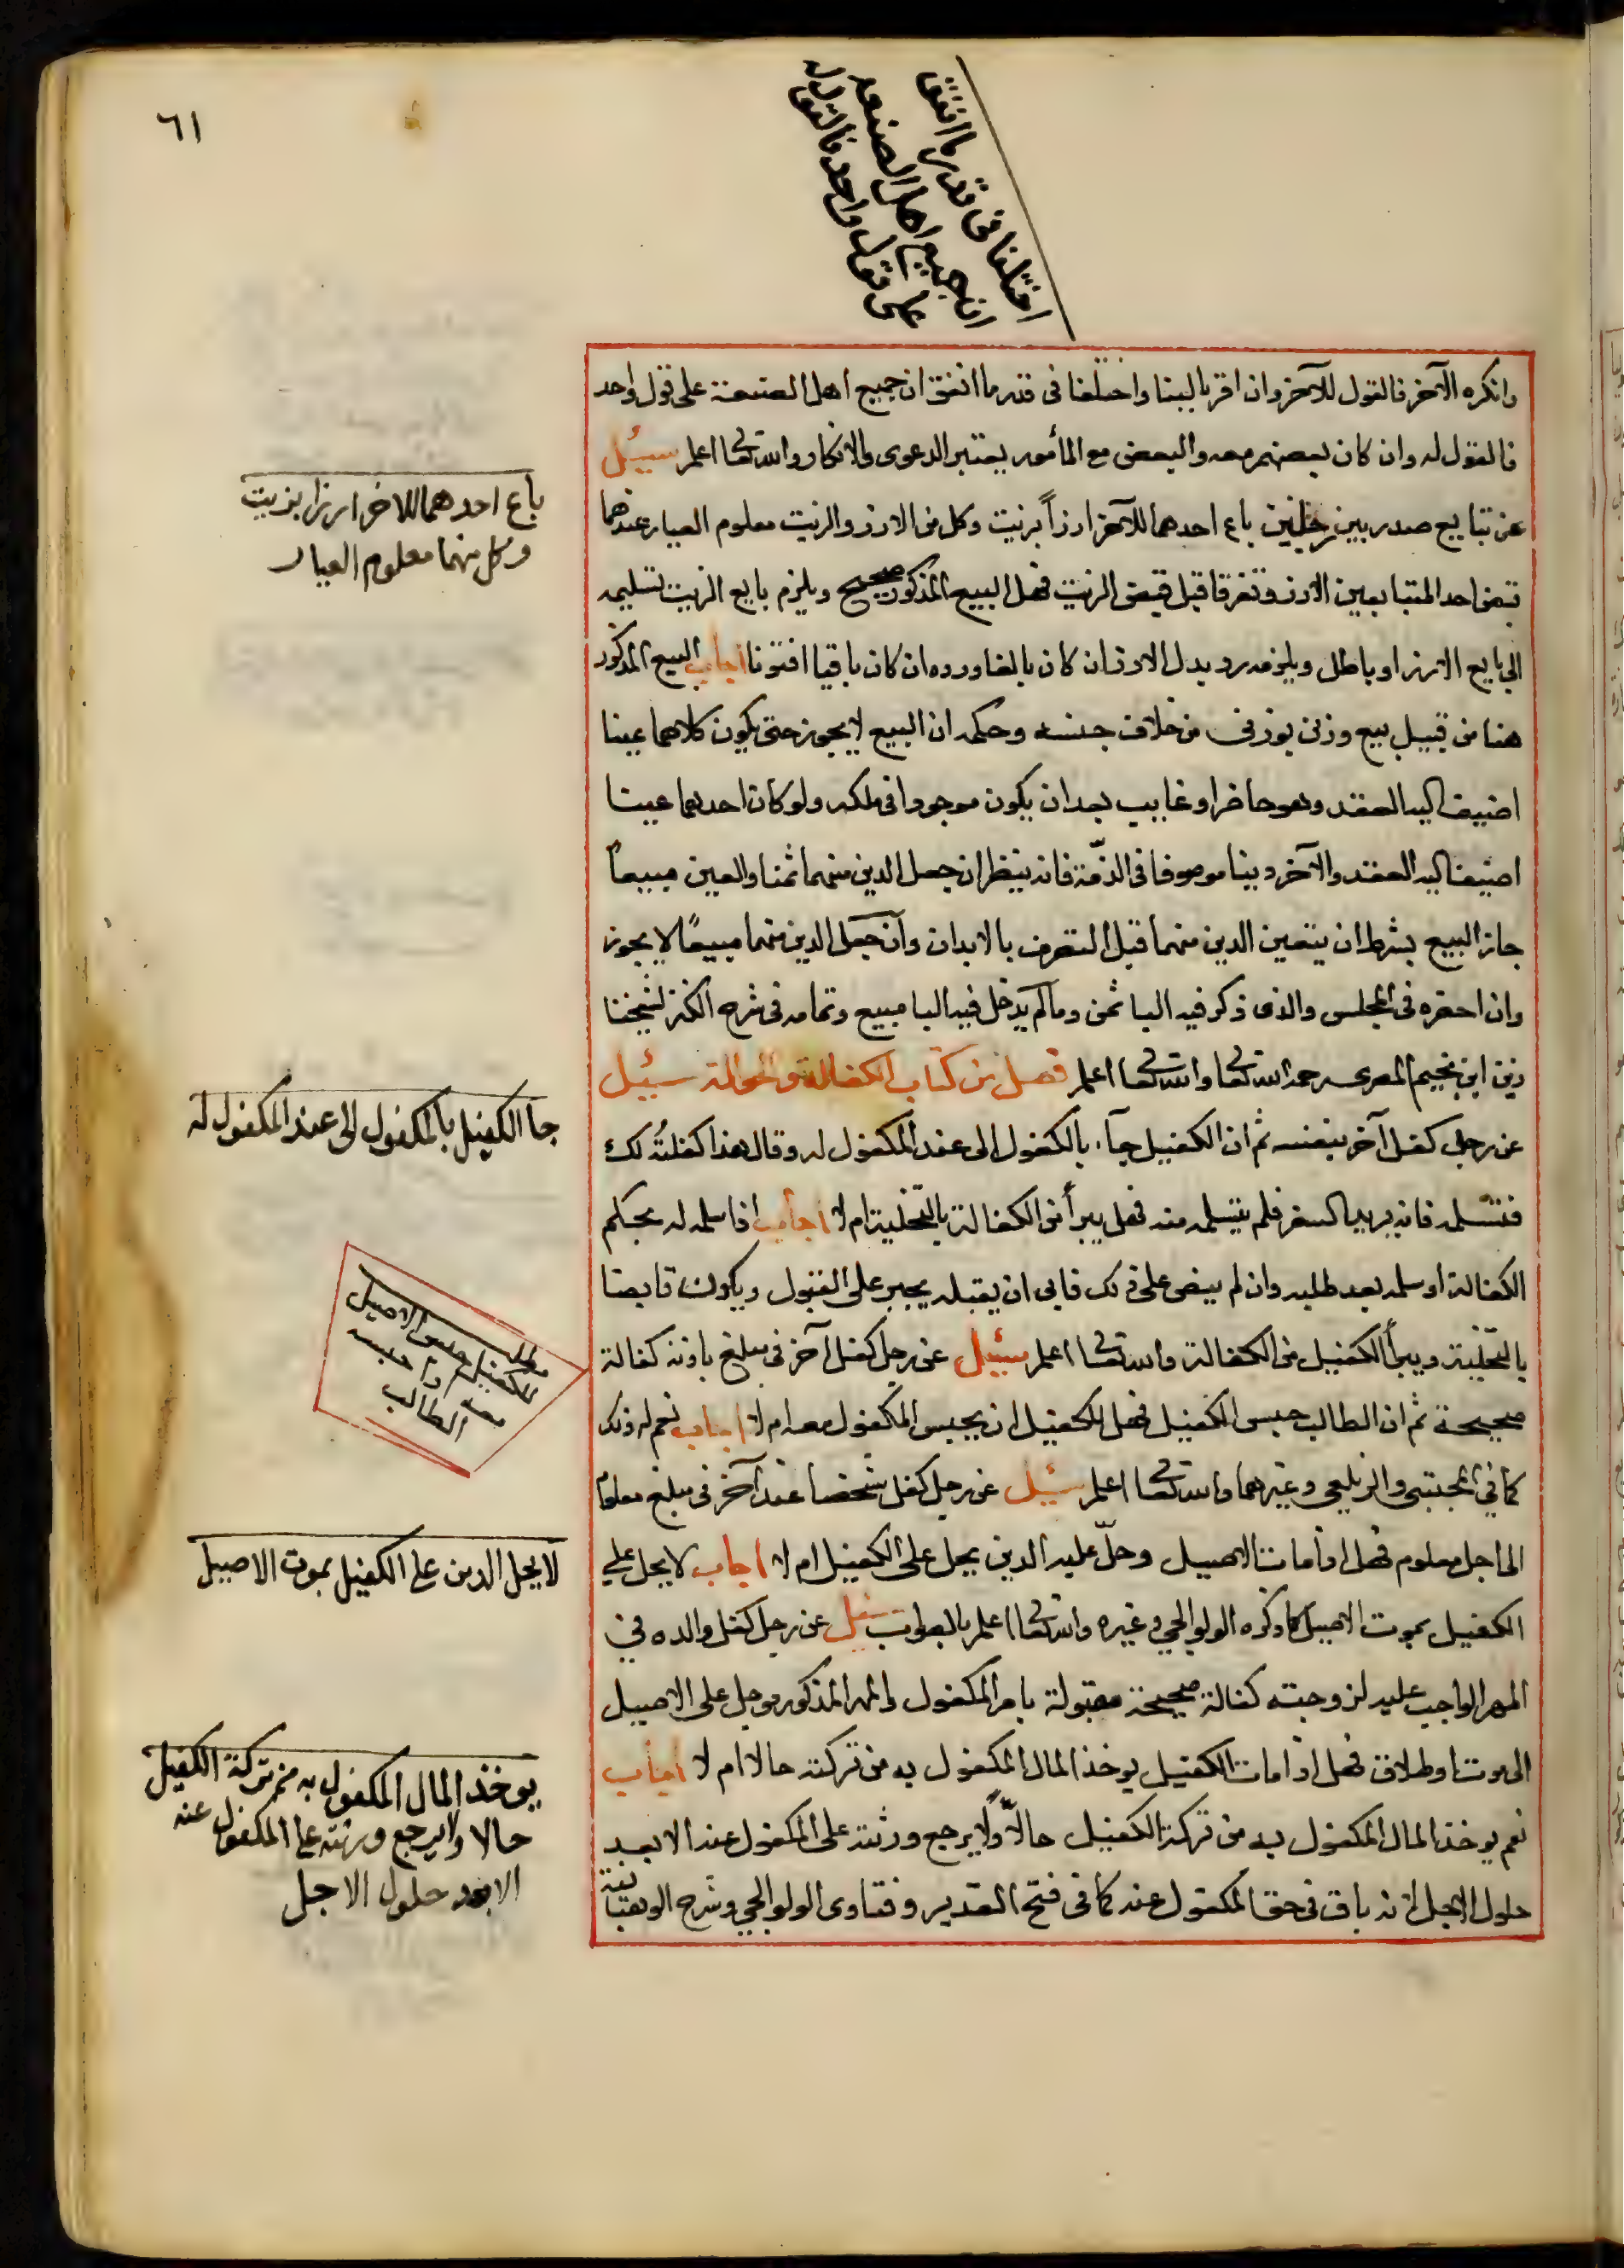 ٦١
اختلفا في قدر ما انفق
ان جميع اهل الصنعة
على قول واحد فالقول له
وانكره الآخر فالقول للآخر وان اقر بالبنا واختلفا فى قدر ما انفق ان جميع اهل الصنعة على قول واحد
فالقول له وان كان بعضهم معه والبعض مع المأمور يعتبر الدعوى والانكار والله تعا اعلم سئيل
عن تبايع صدر بين رجلين باع احدهما للآخر ارزاً بزيت وكل من الارز والزيت معلوم العيار عندهما
قبض احد المتبايعين الارز وتفرقا قبل قبض الزيت فهل البيع المذكور صحيح ويلزم بايع الزيت تسليمه
الى بايع الارز او باطل ويلزمه رد بدل الارز ان كان تالفا ورده ان كان باقيا افتونا اجاب البيع المذكور
هنا من قبيل بيع وزنى بوزنى من خلاف جنسه وحكمه ان البيع لا يجوز حتى يكون كلاهما عينا
اضيف اليه العقد وهو حاضر او غايب بعد ان يكون موجودا فى ملكه ولو كان احدهما عينا
اضيف اليه العقد والآخر دينا موصوفا فى الذمّة فانه ينظر ان جعل الدين منهما ثمنا والعين مبيعاً
جاز البيع بشرط ان يتعين الدين منهما قبل التفرق بالابدان وان جعل الدين منهما مبيعًا لا يجوز
وان احضره فى المجلس والذى ذكر فيه البا ثمن وما لم يدخل فيه البا مبيع وتمامه فى شرح الكنز لشيخنا
زين ابن نجيم المصرى رحمه الله تعا والله تعا اعلم فصل من كتاب الكفالة والحوالة سئيل
عن رجل كفل آخر بنفسه ثم ان الكفيل جآء بالمكفول الى عند المكفول له وقال هذا كفلتُه لك
فتسلمه فانه يريد السفر فلم يتسلمه منه فهل يبرأ من الكفالة بالتخلية ام لا اجاب اذا سلمه له بحكم
الكفالة او سلمه بعد طلبه وان لم ينص على ذلك فابى ان يقبله يجبر على القبول ويكون قابضا
بالتخلية ويبرأ الكفيل من الكفالة والله تعا اعلم سئيل عن رجل كفل آخر فى مبلغ باذنه كفالة
صحيحة ثم ان الطالب حبس الكفيل فهل للكفيل ان يحبس المكفول معه ام لا اجاب نعم له ذلك
كما في المجتبى والزيلعي وغيرهما والله تعا اعلم سئيل عن رجل كفل شخصا عند آخر فى مبلغ معلوم
الى اجل معلوم فهل اذا مات الاصيل وحلّ عليه الدين يحل على الكفيل ام لا اجاب لا يحل على
الكفيل بموت الاصيل كما ذكره الولوالجي وغيره والله تعا اعلم بالصواب سئيل عن رجل كفل والده في
المهر الواجب عليه لزوجته كفالة صحيحة مقبولة بامر المكفول والمهر المذكور موجل على الاصيل
الى موت او طلاق فهل اذا مات الكفيل يوخذ المال المكفول به من تركته حالا ام لا اجاب
نعم يوخذ المال المكفول به من تركة الكفيل حالاً ولا يرجع ورثته على المكفول عنه الا بعد
حلول الاجل لانه باق فى حق المكفول عنه كما فى فتح القدير وفتاوى الولوالجي وشرح الوهبانية
باع احدهما للاخر ارزا بزيت
وكل منهما معلوم العيار
جا الكفيل بالمكفول الى عند المكفول له
مطلب
للكفيل حبس الاصيل
معه اذا حبسه
الطالب
لا يحل الدين على الكفيل بموت الاصيل
يوخذ المال المكفول به من تركة الكفيل
حالا ولا يرجع ورثته على المكفول عنه
الا بعد حلول الاجل